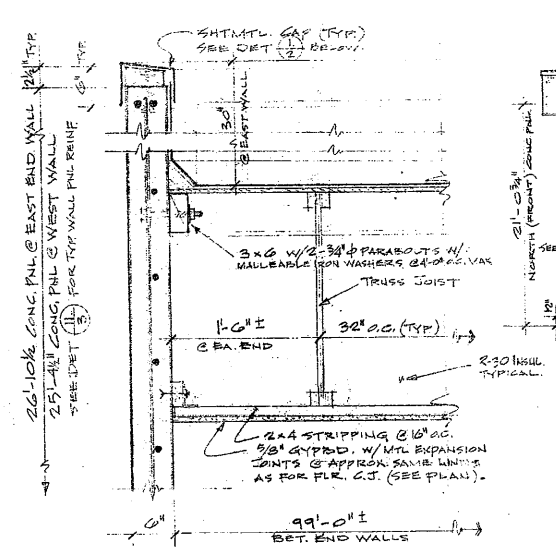 SHTMTL. CAP (TYP.)
SEE DET 1/2 BELOW.
2½" TYP.
6" TYP.
30"
@ EAST WALL
26'-10½ CONC. PNL. @ EAST END WALL
25'-4½" CONC. PNL @ WEST WALL
SEE DET 11/3 FOR TYP. WALL PNL REINF.
21'-0¾"
NORTH (FRONT) CONC PNL
SEE
3x6 W/2-¾"φ PARABOLTS W/
MALLEABLE IRON WASHERS @4'-0" O.C.
TRUSS JOIST
1'-6" ±
@ EA. END
32" O.C. (TYP)
R-30 INSUL.
TYPICAL.
2x4 STRIPPING @ 16" O.C.
5/8" GYPBD. W/ MTL EXPANSION
JOINTS @ APPROX. SAME LINES
AS FOR FLR. C.J. (SEE PLAN).
6"
99'-0" ±
BET. END WALLS